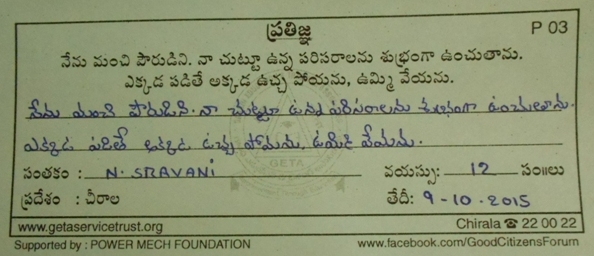 ప్రతిజ్ఞ P 03
నేను మంచి పౌరుడిని. నా చుట్టూ ఉన్న పరిసరాలను శుభ్రంగా ఉంచుతాను.
ఎక్కడ పడితే అక్కడ ఉచ్చ పోయను, ఉమ్మి వేయను.
నేను మంచి పౌరుడిని. నా చుట్టూ ఉన్న పరిసరాలను శుభ్రంగా ఉంచుతాను.
ఎక్కడ పడితే అక్కడ ఉచ్చ పోయను, ఉమ్మి వేయను.
GETA
సంతకం : N. SRAVANI వయస్సు: 12 సం॥లు
ప్రదేశం : చీరాల తేదీ: 9-10-2015
www.getaservicetrust.org Chirala ☎ 22 00 22
Supported by : POWER MECH FOUNDATION www.facebook.com/GoodCitizensForum